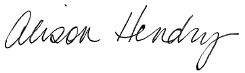 Alison Hendry